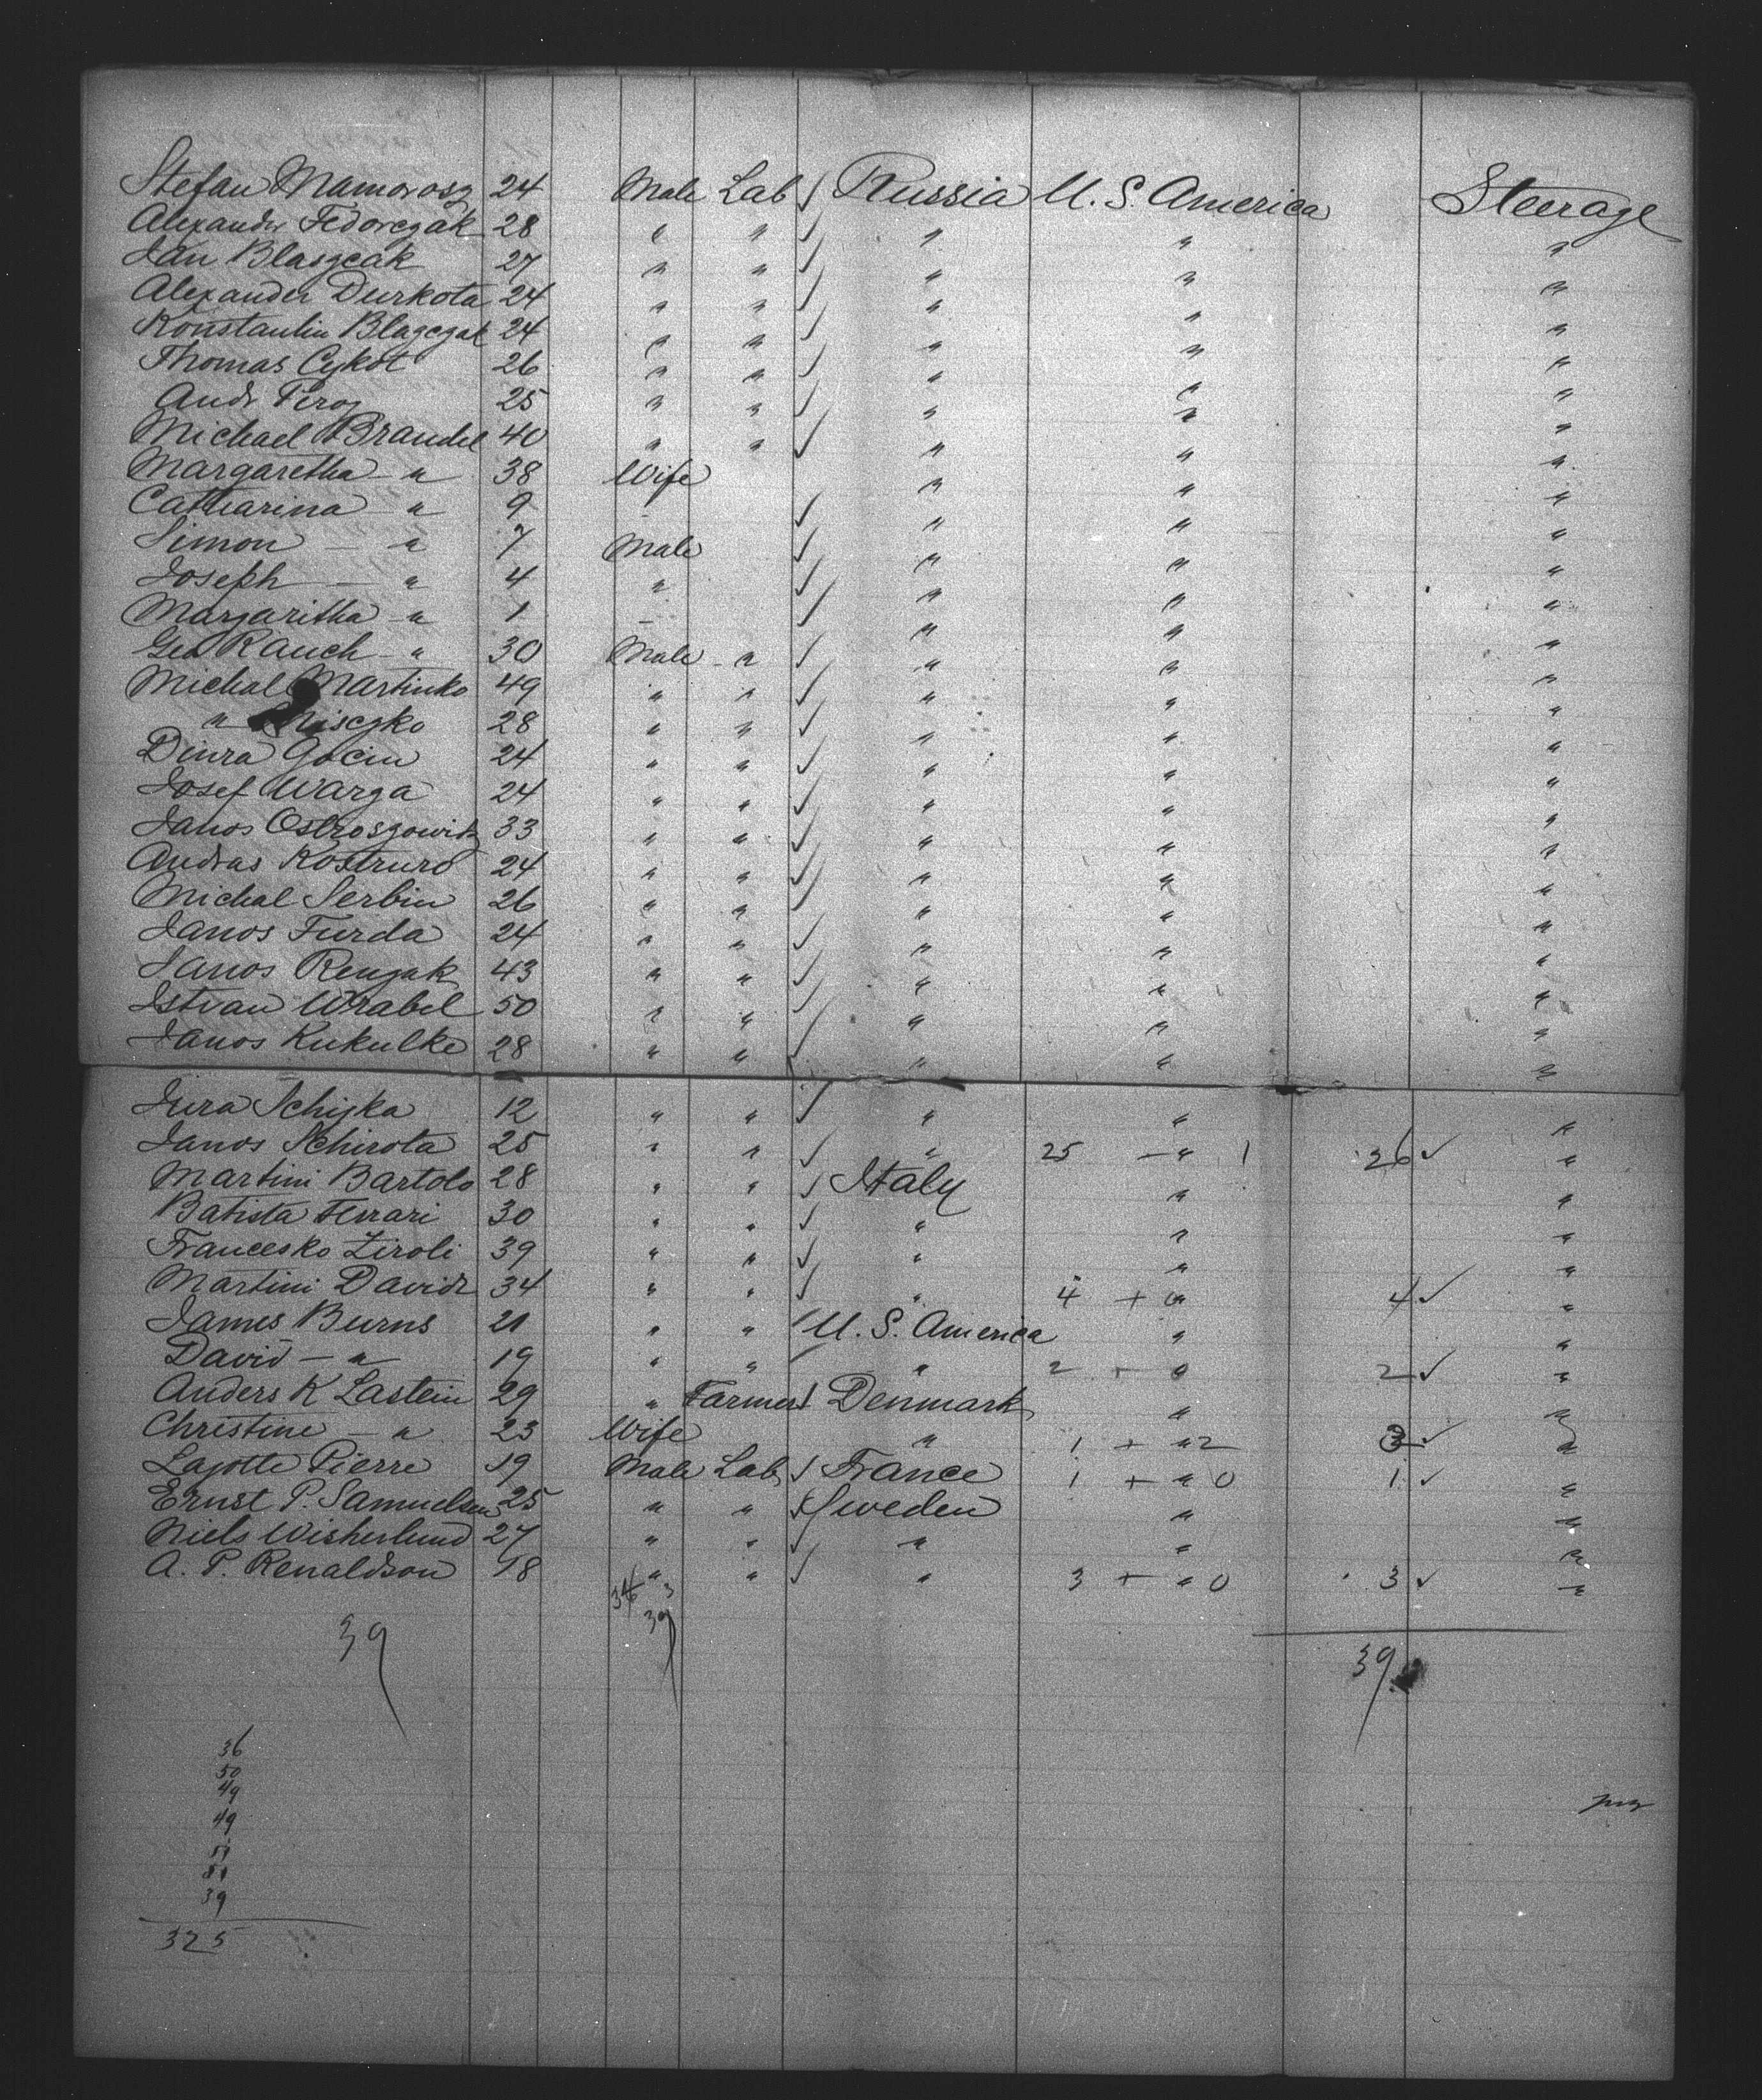 Stefan Mamorosz 24 Male Lab ✓ Russia U.S. America Steerage
Alexander Fedorczak 28 " " ✓ " " "
Jan Blaszcak 27 " " ✓ " " "
Alexander Durkota 24 " " ✓ " " "
Konstantin Blazczak 24 " " ✓ " " "
Thomas Cykot 26 " " ✓ " " "
Andr Pirog 25 " " ✓ " " "
Michael Brandel 40 " " ✓ " " "
Margaretha - " 38 Wife " " "
Catharina - " 9 - ✓ " " "
Simon - " 7 Male ✓ " " "
Joseph - " 4 " ✓ " " "
Margaritha - " 1 - ✓ " " "
Geo Rauch - " 30 Male - " ✓ " " "
Michal Martinko 49 " " ✓ " " "
" Misczko 28 " " ✓ " " "
Diura Gocin 24 " " ✓ " " "
Josef Warga 24 " " ✓ " " "
Janos Ostroszowitz 33 " " ✓ " " "
Andras Kostruro 24 " " ✓ " " "
Michal Serbin 26 " " ✓ " " "
Janos Furda 24 " " ✓ " " "
Janos Renzak 43 " " ✓ " " "
Istvan Wrabel 50 " " ✓ " " "
Janos Kukulke 28 " " ✓ " " "
Jura Schizka 12 " " ✓ " " "
Janos Schirota 25 " " ✓ " 25 - " 1 26 ✓ "
Martini Bartolo 28 " " ✓ Italy " "
Batista Ferrari 30 " " ✓ " " "
Francesko Ziroli 39 " " ✓ " " "
Martini David 34 " " ✓ " 4 + " 4 ✓ "
James Burns 21 " " ✓ U. S. America " "
David - " 19 " " ✓ " 2 + " 2 ✓ "
Anders K Lastein 29 " Farmer ✓ Denmark " "
Christine - " 23 Wife " 1 + " 2 3 ✓ "
Lajotte Pierre 19 Male Lab ✓ France 1 + " 0 1 ✓ "
Ernst P. Samuelsen 25 " " ✓ Sweden " "
Niels Wisherlund 27 " " ✓ " " "
A. P. Renaldson 18 " " ✓ " 3 + " 0 3 ✓ "
36 3
39 39 39
36
50
49
49
51
51
39
325